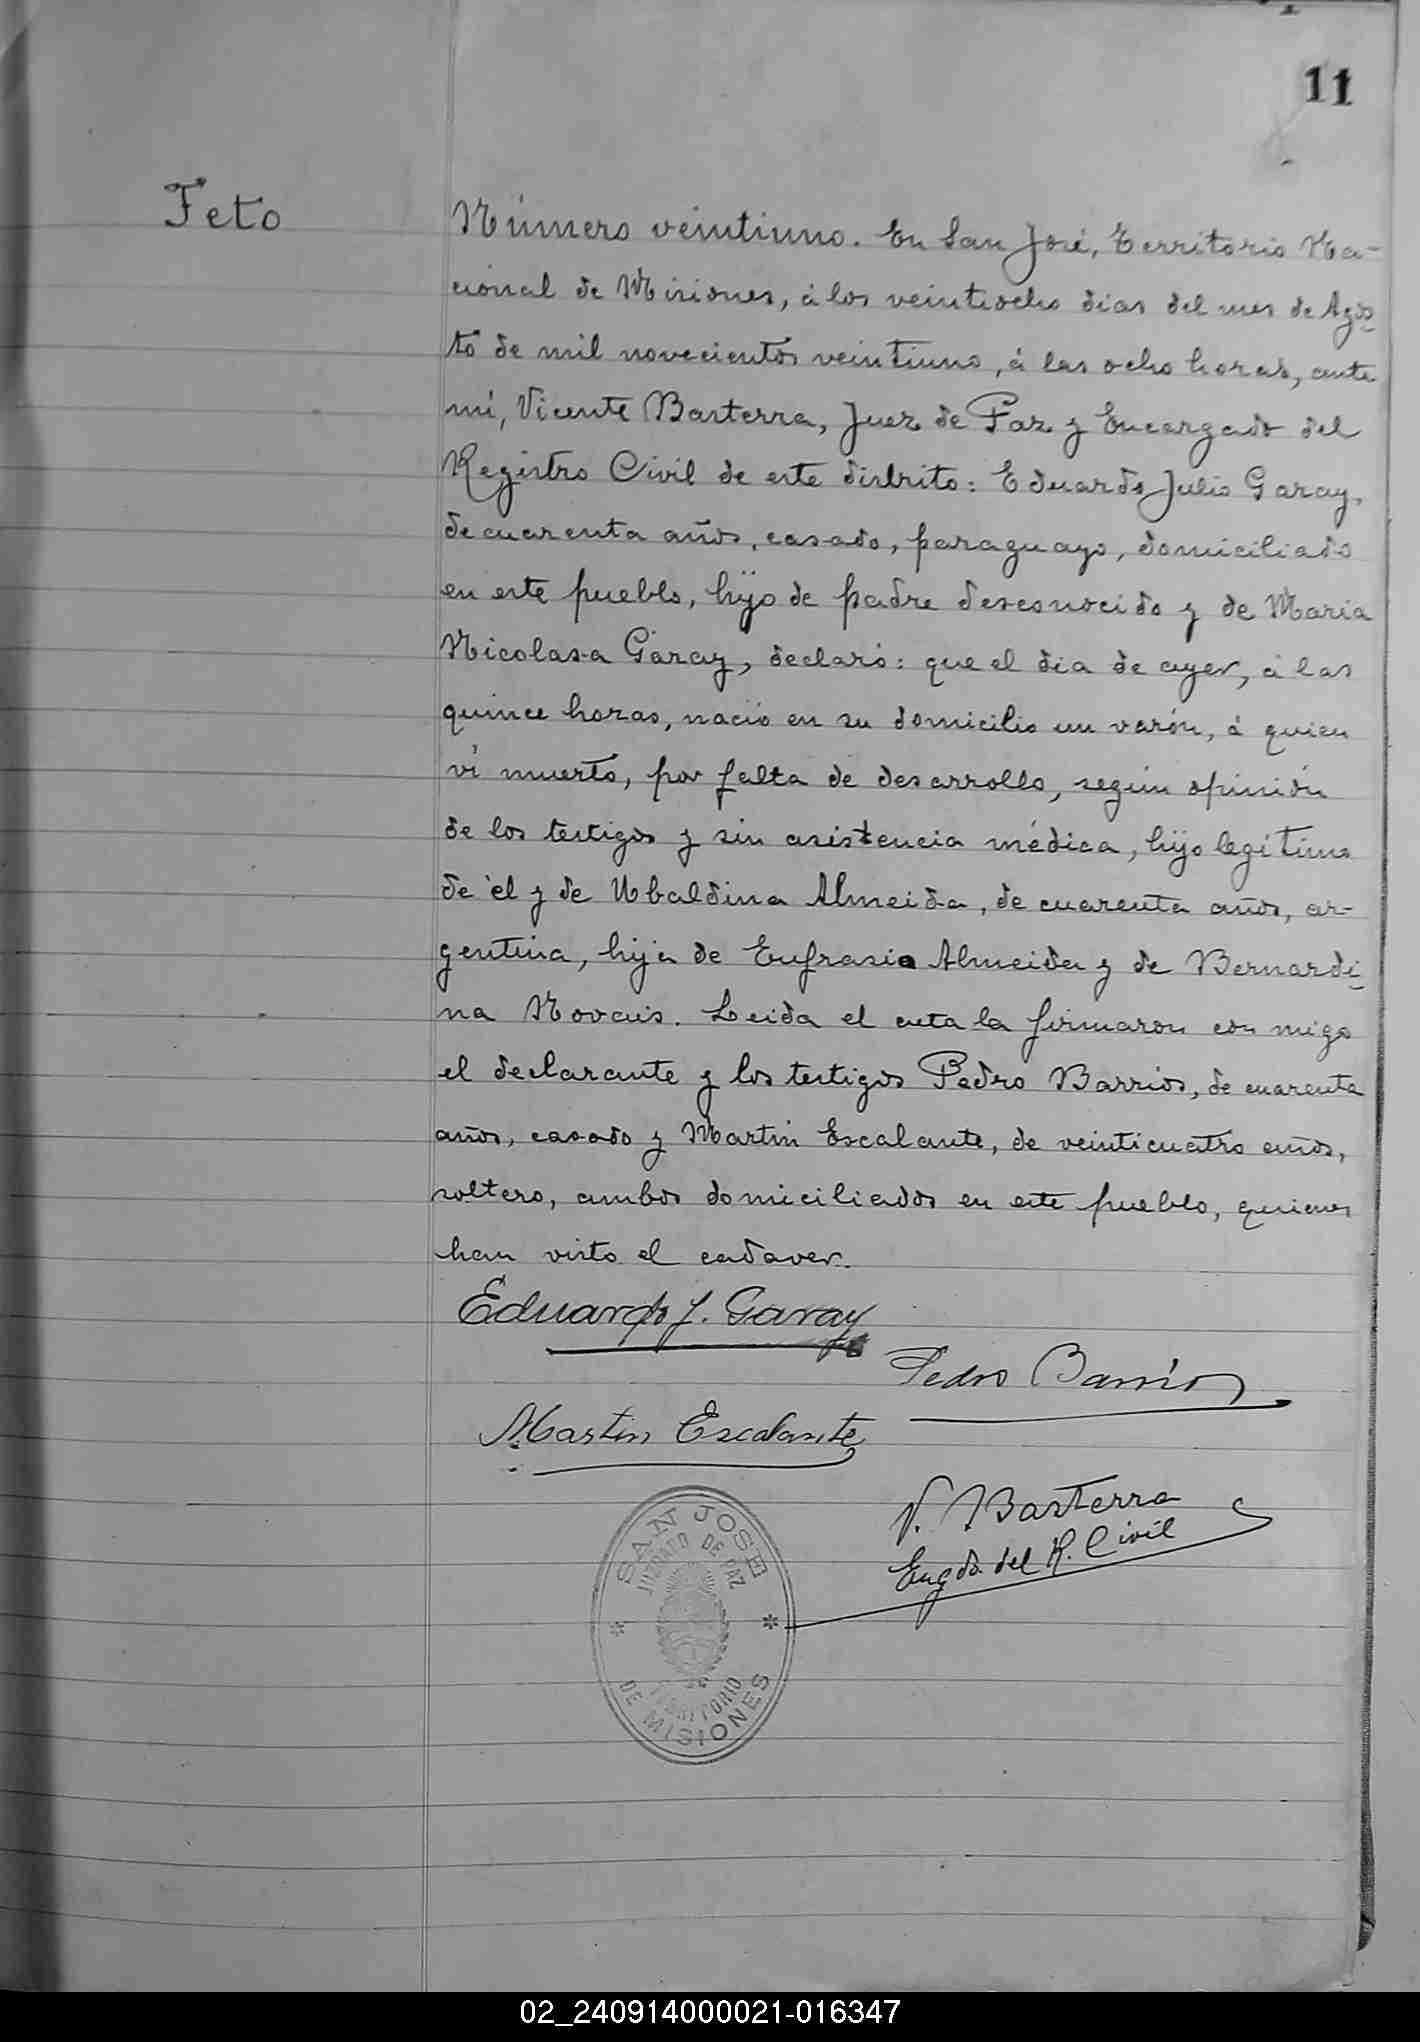 11
Feto
Número veintiuno. En San José, Territorio Na-
cional de Misiones, á los veintiocho dias del mes de Agos-
to de mil novecientos veintiuno, á las ocho horas, ante
mí, Vicente Basterra, Juez de Paz y Encargado del
Registro Civil de este distrito: Eduardo Julio Garay,
de cuarenta años, casado, paraguayo, domiciliado
en este pueblo, hijo de padre desconocido y de Maria
Nicolasa Garay, declaró: que el dia de ayer, á las
quince horas, nació en su domicilio un varón, á quien
ví muerto, por falta de desarrollo, según opinión
de los testigos y sin asistencia médica, hijo legítimo
de él y de Ubaldina Almeida, de cuarenta años, ar-
gentina, hija de Eufrasio Almeida y de Bernardi-
na Novais. Leida el acta la firmaron con migo
el declarante y los testigos Pedro Barrios, de cuarenta
años, casado y Martin Escalante, de veinticuatro años,
soltero, ambos domiciliados en este pueblo, quienes
han visto el cadaver.
Eduardo J. Garay
Pedro Barrios
Martin Escalante
V. Basterra
Engdo. del R. Civil
SAN JOSE
JUZGADO DE PAZ
TERRITORIO
DE MISIONES
02_240914000021-016347